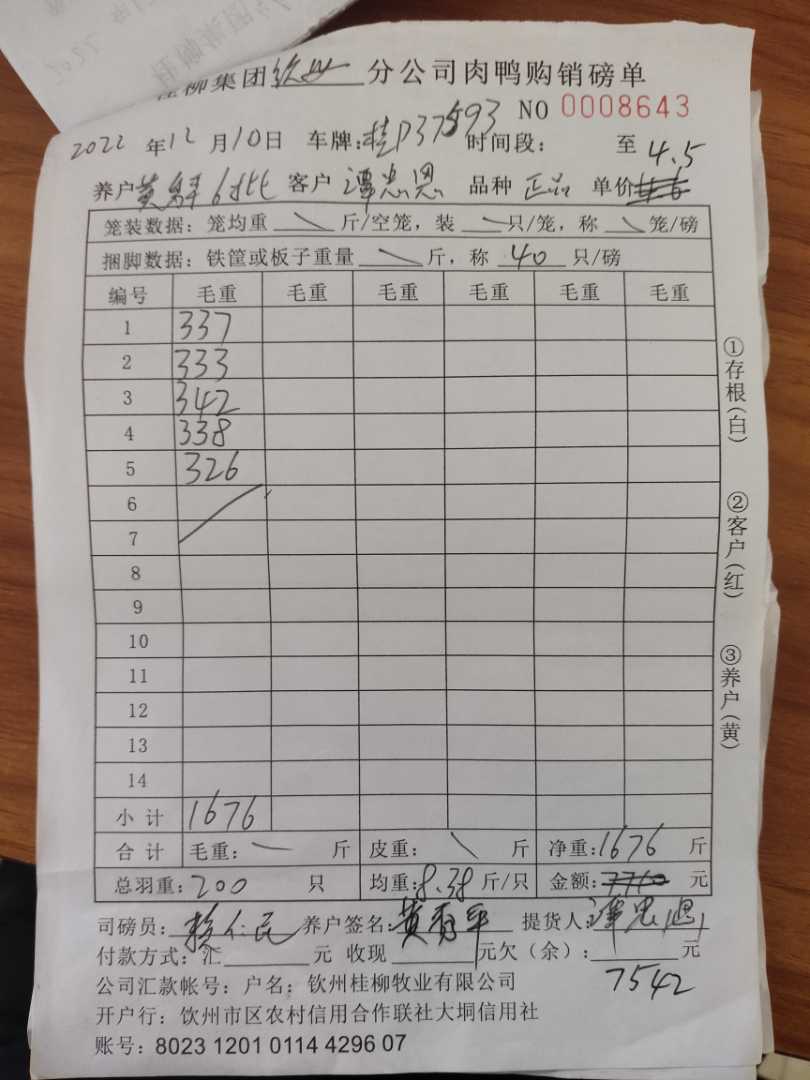 桂柳集团钦州分公司肉鸭购销磅单
NO 0008643
2022年12月10日 车牌:桂P37593 时间段: 至 4.5
养户黄 6批 客户 谭忠恩 品种 正品 单价
笼装数据: 笼均重 \ 斤/空笼, 装 \ 只/笼, 称 \ 笼/磅
捆脚数据: 铁筐或板子重量 \ 斤, 称 40 只/磅
编号 毛重 毛重 毛重 毛重 毛重 毛重
1 337
2 333
3 342
4 338
5 326
6
7
8
9
10
11
12
13
14
小计 1676
合计 毛重: 斤 皮重: \ 斤 净重:1676 斤
总羽重:200 只 均重:8.38 斤/只 金额:7760 元
司磅员: 养户签名: 提货人:谭忠恩
付款方式: 汇 元 收现 元欠(余): 元
7542
公司汇款帐号: 户名: 钦州桂柳牧业有限公司
开户行: 钦州市区农村信用合作联社大垌信用社
账号: 8023 1201 0114 4296 07
①存根(白)
②客户(红)
③养户(黄)